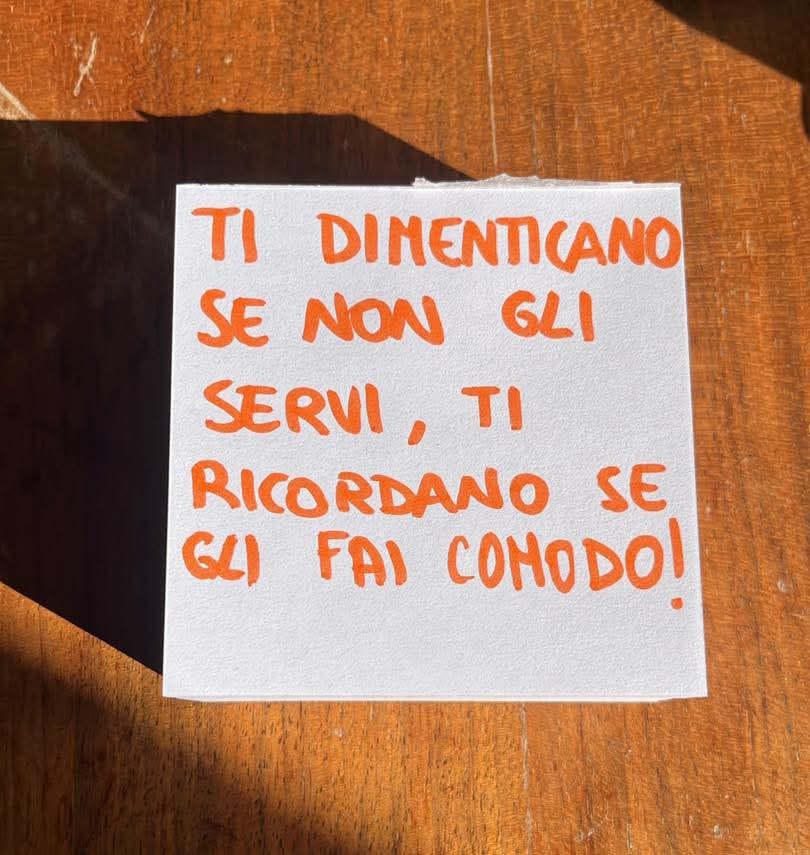 TI DIMENTICANO
SE NON GLI
SERVI, TI
RICORDANO SE
GLI FAI COMODO!